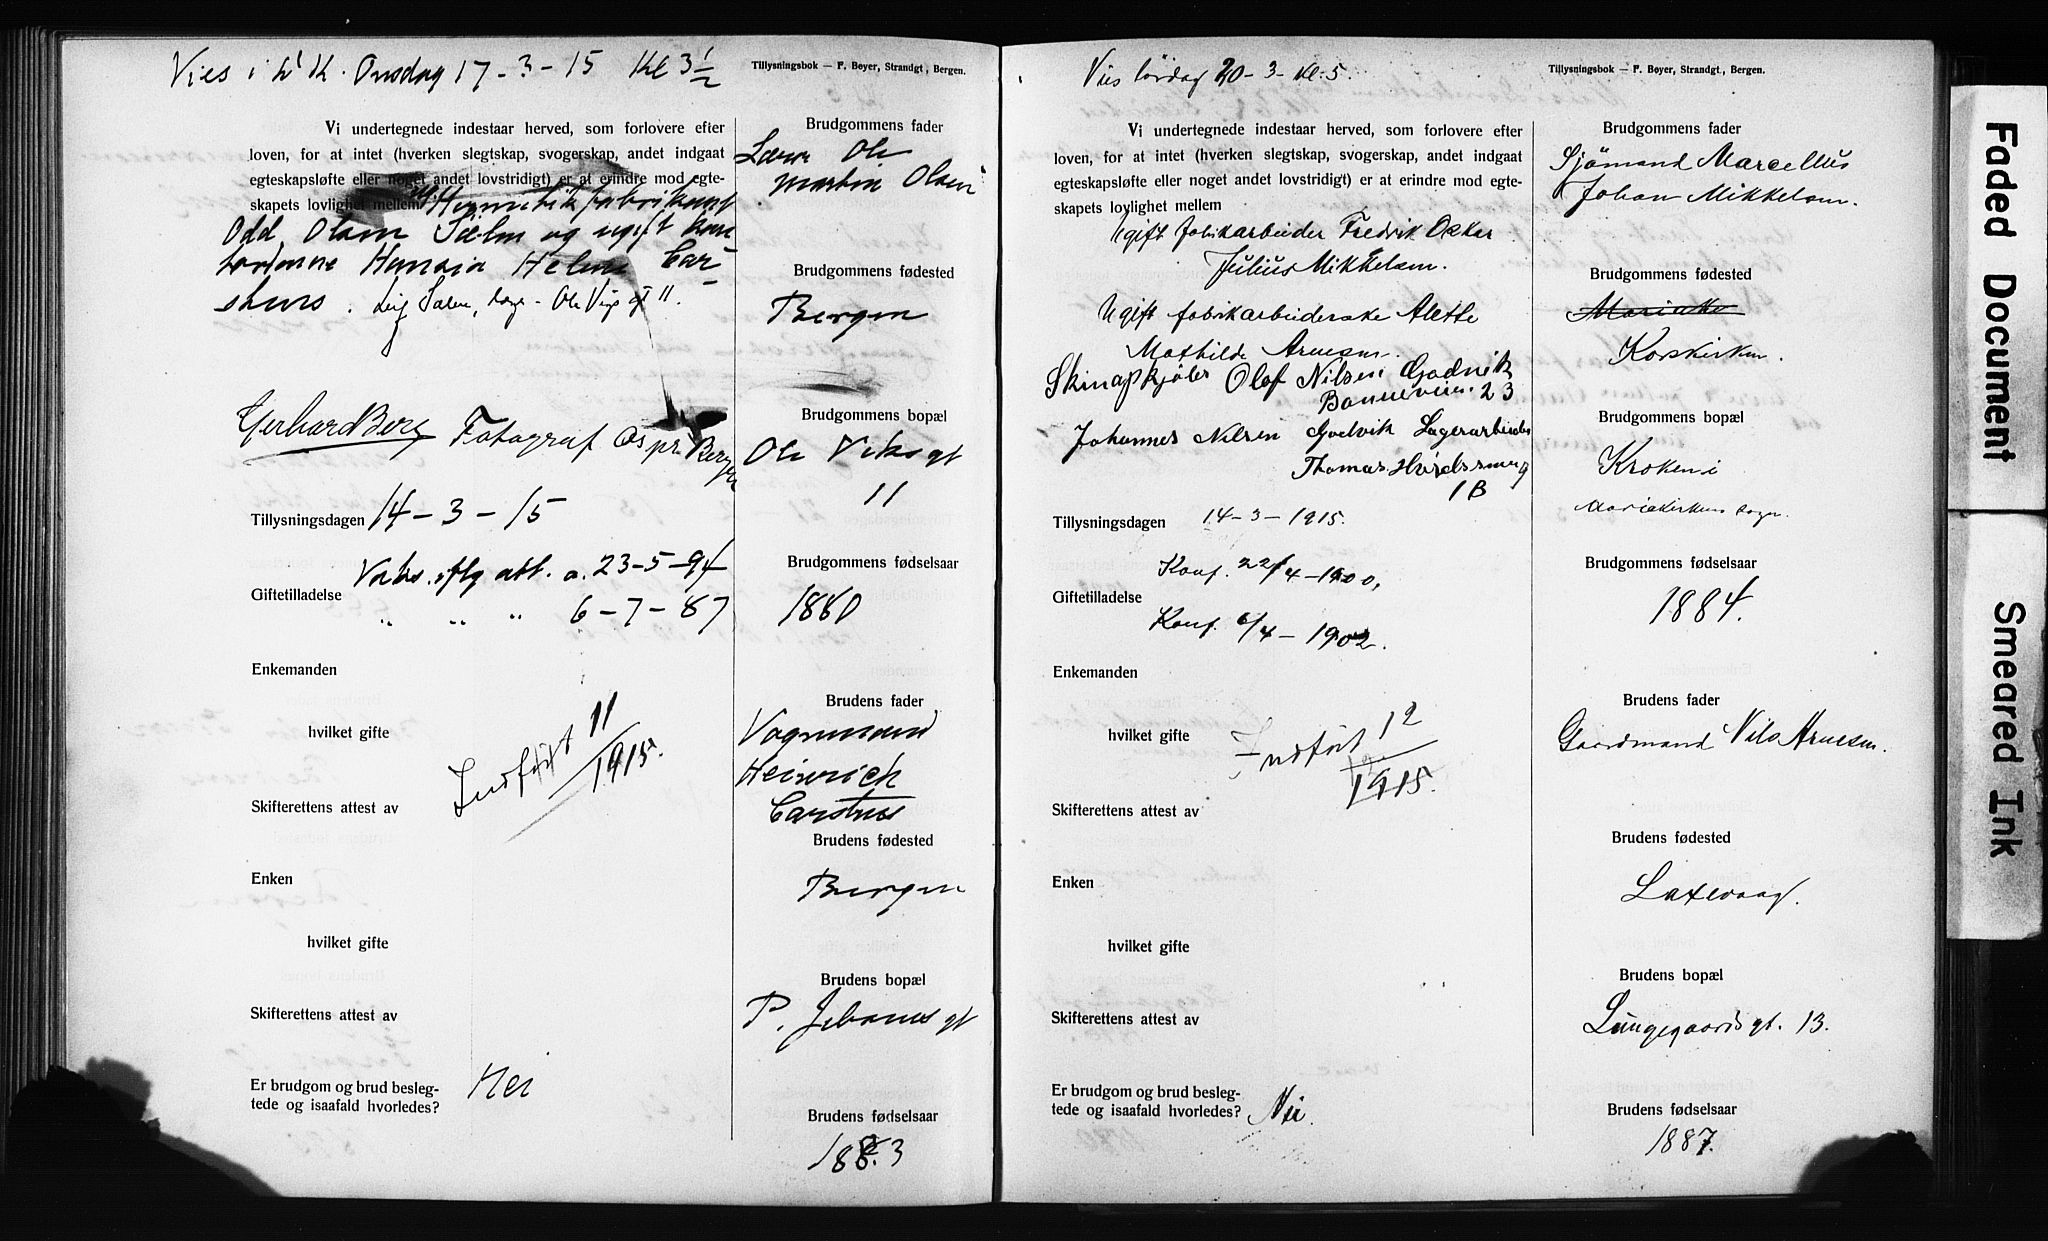 Vies i K. Onsdag 17-3-15 Kl 3½
Tillysningsbok — F. Beyer, Strandgt., Bergen.
Vi undertegnede indestaar herved, som forlovere efter
loven, for at intet (hverken slegtskap, svogerskap, andet indgaat
egteskapsløfte eller noget andet lovstridigt) er at erindre mod egte-
skapets lovlighet mellem Hermetikfabrikant
Odd Olsen Sælen og ugift
Helene Car-
stens.
Gerhard Berg Fotograf Bergen
Tillysningsdagen 14-3-15
Vaks. iflg att. a. 23-5-94
Giftetilladelse
" " " 6-7-87
Enkemanden
hvilket gifte
Indført 11/1915.
Skifterettens attest av
Enken
hvilket gifte
Skifterettens attest av
Er brudgom og brud besleg-
tede og isaafald hvorledes? Nei
Brudgommens fader
Lærer Ole
Martin Olsen
Brudgommens fødested
Bergen
Brudgommens bopæl
Ole Viksgt
11
Brudgommens fødselsaar
1880
Brudens fader
Vognmand
Heinrich
Carstens
Brudens fødested
Bergen
Brudens bopæl
P. Jebsens gt
Brudens fødselsaar
1883
Vies lørdag 20-3- kl. 5.
Tillysningsbok — F. Beyer, Strandgt., Bergen.
Vi undertegnede indestaar herved, som forlovere efter
loven, for at intet (hverken slegtskap, svogerskap, andet indgaat
egteskapsløfte eller noget andet lovstridigt) er at erindre mod egte-
skapets lovlighet mellem
Ugift fabrikarbeider Fredrik Oskar
Julius Mikkelsen.
Ugift fabrikarbeiderske Alette
Mathilde Arnesen.
Olaf Nilsen Godvik
23
Johannes Nilsen Godvik Lagerarbeider
Thomas
1 B
Tillysningsdagen 14-3-1915.
Konf. 22/4-1900,
Giftetilladelse
Konf. 6/4-1902.
Enkemanden
hvilket gifte
Indført 12/1915.
Skifterettens attest av
Enken
hvilket gifte
Skifterettens attest av
Er brudgom og brud besleg-
tede og isaafald hvorledes? Nei.
Brudgommens fader
Sjømand Marcellus
Johan Mikkelsen.
Brudgommens fødested
Korskirken.
Brudgommens bopæl
Kroken i
Mariakirkens sogn.
Brudgommens fødselsaar
1884.
Brudens fader
Gaardmand Nils Arnesen.
Brudens fødested
Laxevaag.
Brudens bopæl
Lungegaardsgt. 13.
Brudens fødselsaar
1887.
Faded Document
Smeared Ink